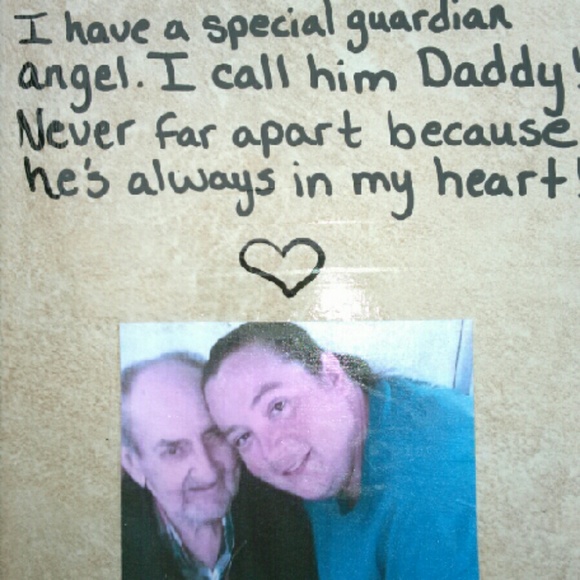 I have a special guardian
angel. I call him Daddy!
Never far apart because
he's always in my heart!